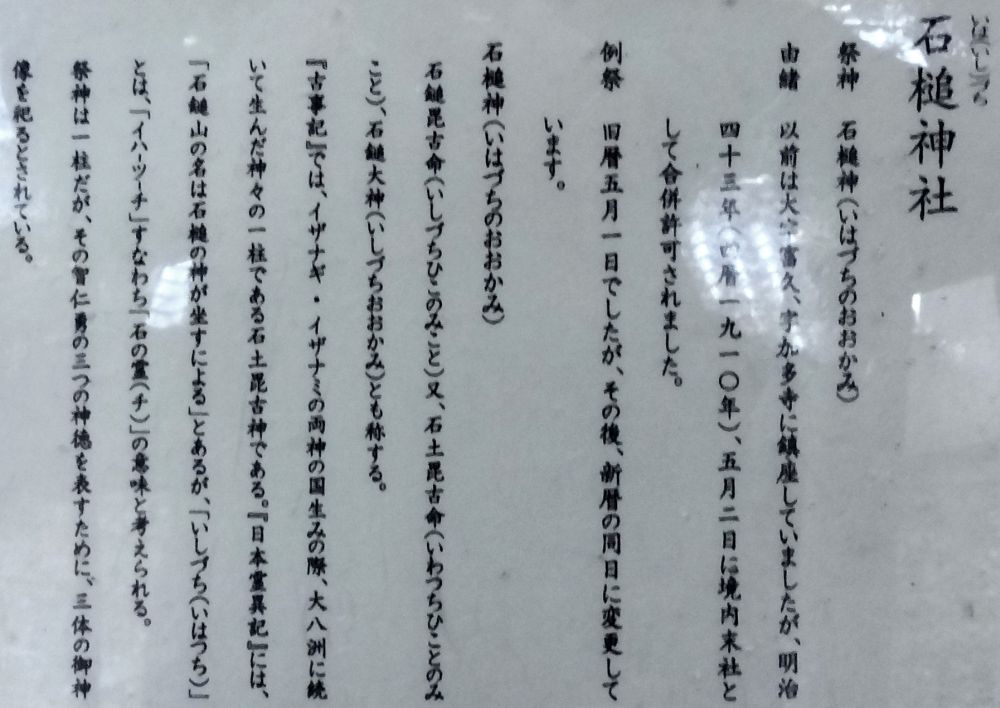 いはいしづち
石槌神社
祭神　石槌神（いはづちのおおかみ）
由緒　以前は大字富久、字加多寺に鎮座していましたが、明治
四十三年（西暦一九一〇年）、五月二日に境内末社と
して合併許可されました。
例祭　旧暦五月一日でしたが、その後、新暦の同日に変更して
います。
石槌神（いはづちのおおかみ）
石鎚毘古命（いしづちひこのみこと）又、石土毘古命（いわつちひことのみ
こと）、石鎚大神（いしづちおおかみ）とも称する。
『古事記』では、イザナギ・イザナミの両神の国生みの際、大八洲に続
いて生んだ神々の一柱である石土毘古神である。『日本霊異記』には、
「石鎚山の名は石槌の神が坐すによる」とあるが、「いしづち（いはつち）」
とは、「イハーツーチ」すなわち「石の霊（チ）」の意味と考えられる。
祭神は一柱だが、その智仁勇の三つの神徳を表すために、三体の御神
像を祀るとされている。